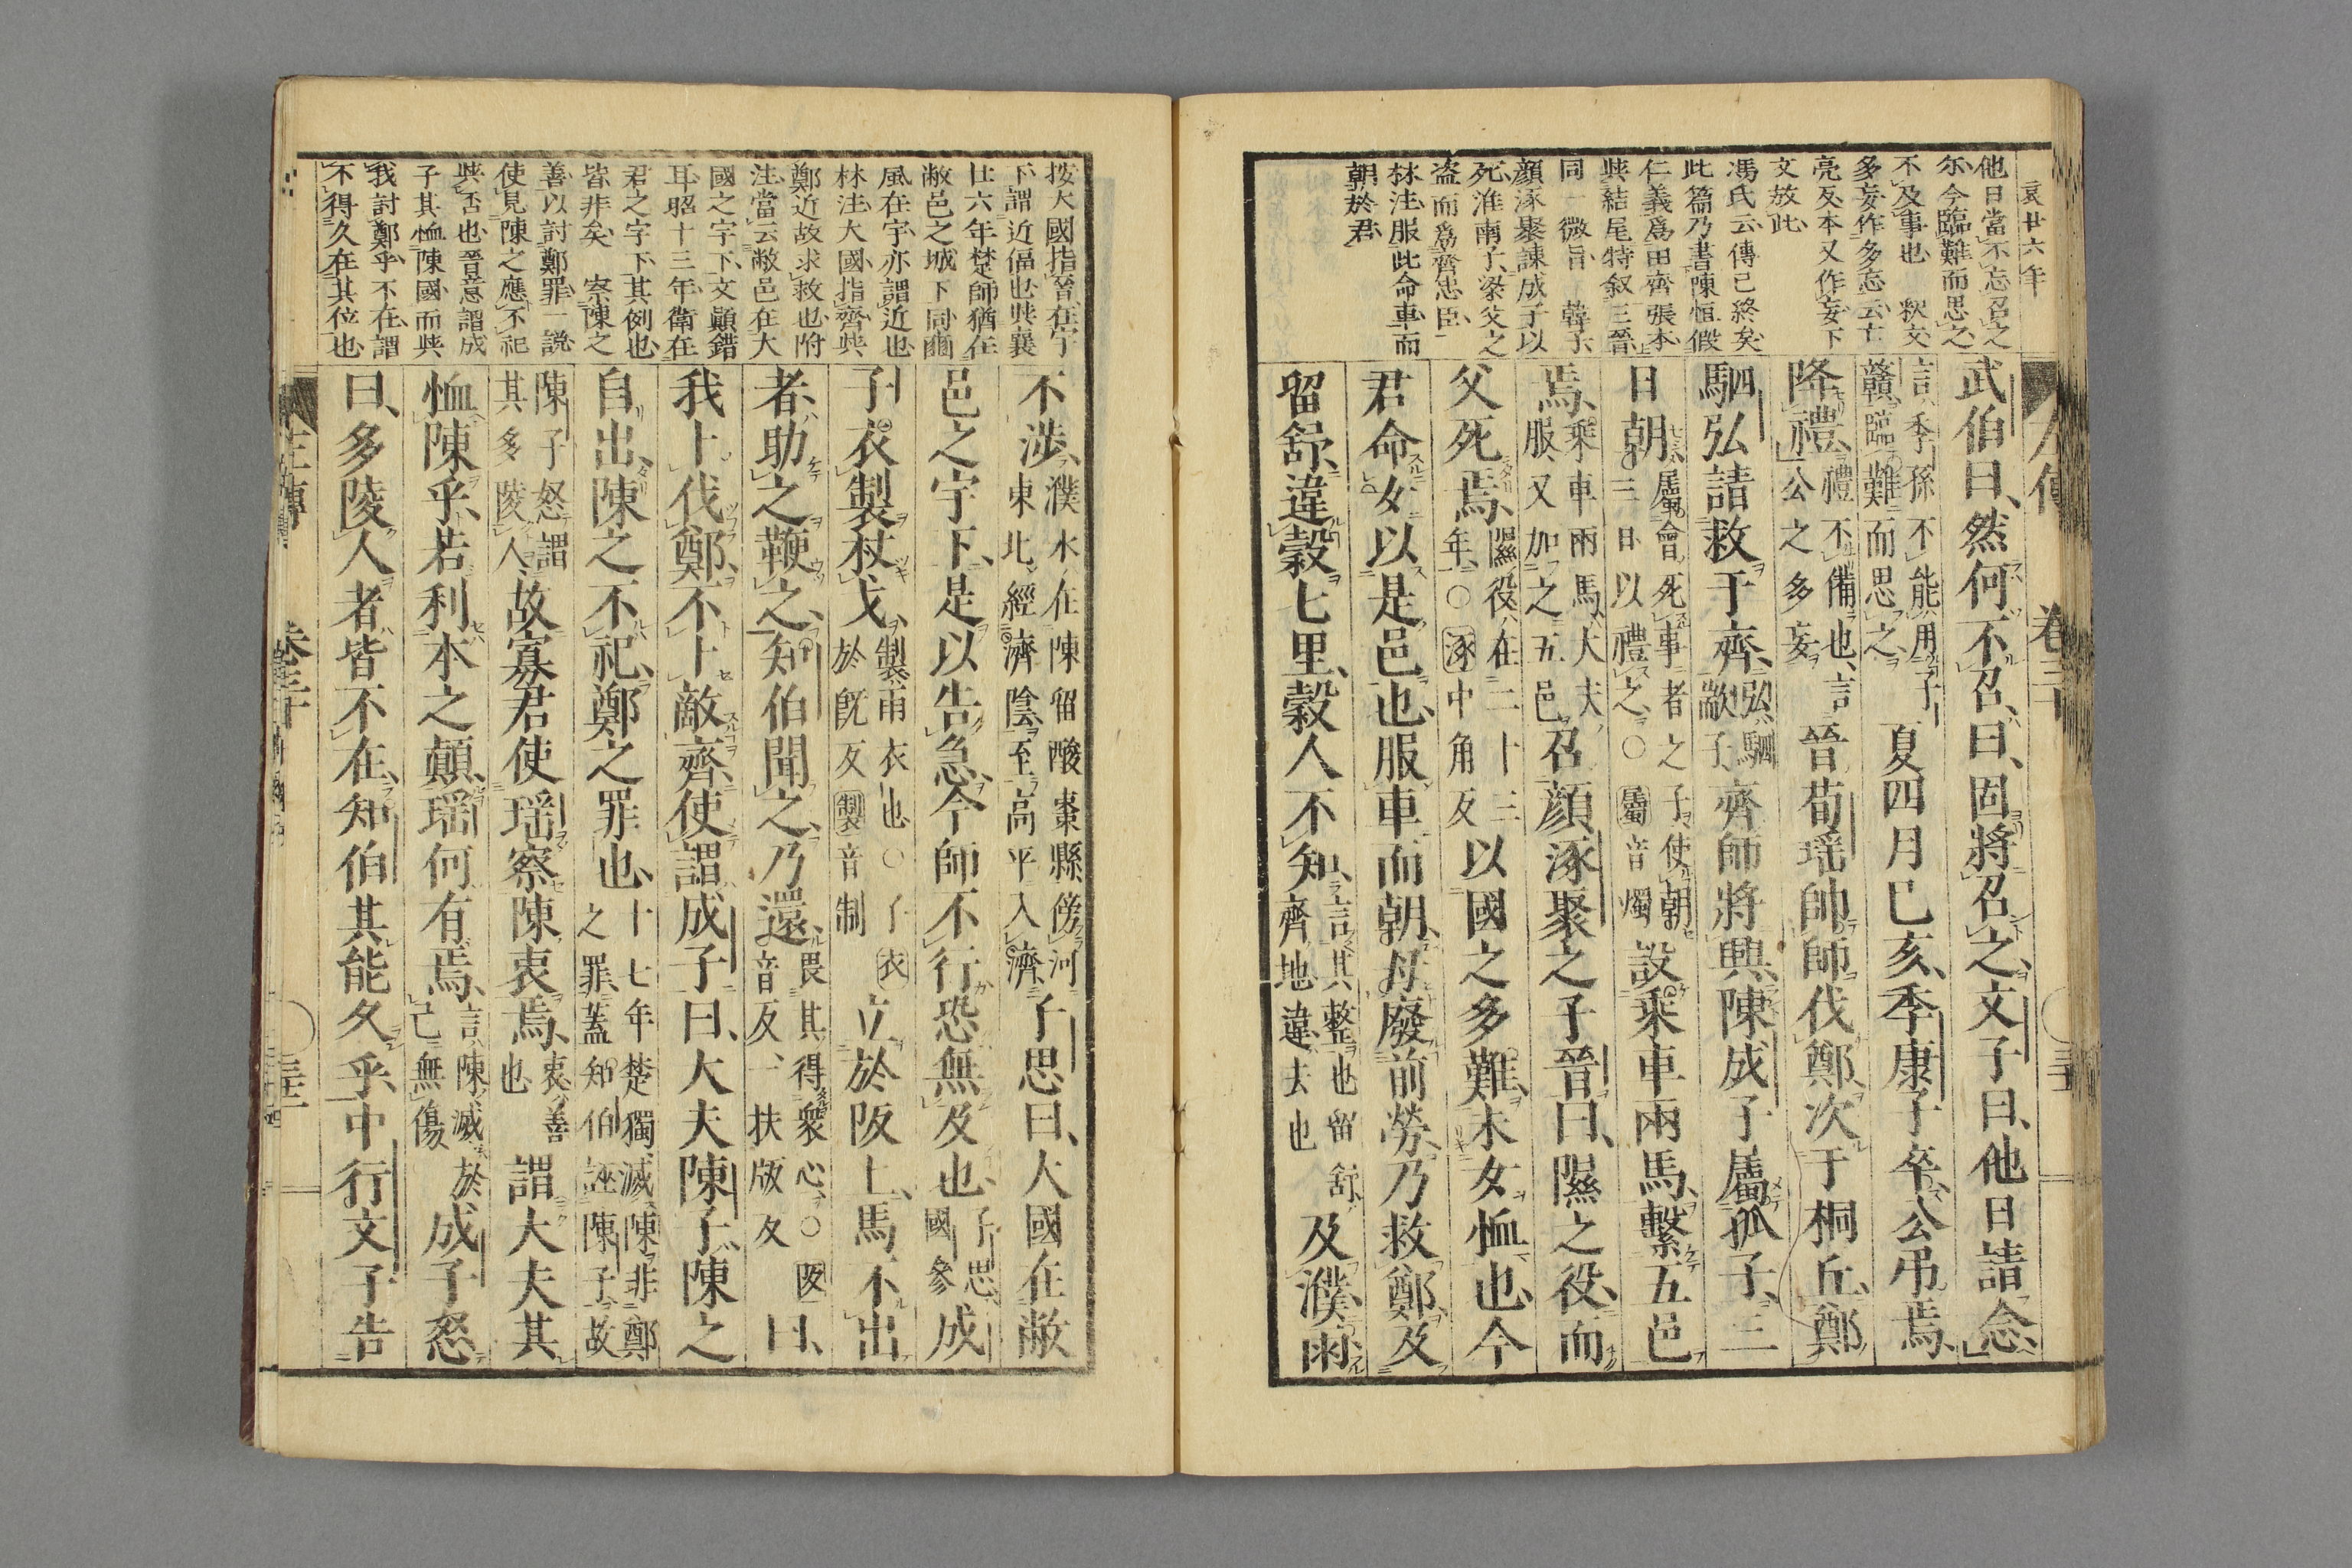 哀廿六年
他日當不忘召之
尓今臨難而思之
不及事也　釈文
多妄作多忘云亡
亮反本又作妄下
文放此
馮氏云傳已終矣
此篇乃書陳恒假
仁義爲田齊張本
與結尾特叙三晉
同一微旨　韓子
顔涿聚諫成子以
死淮南子梁父之
盗而爲齊忠臣
林注服此命車而
朝於君
武伯曰然何不召曰固將召之文子曰他日請念
言季孫不能用子
贛臨難而思之
夏四月巳亥季康子卒公弔焉
降禮
禮不備也言
公之多妄
晉荀瑶帥師伐鄭次于桐丘鄭
駟弘請救于齊
弘駟
歂子
齊師將興陳成子屬孤子三
日朝
屬會死事者之子使朝
三日以禮之○屬音燭
設乗車兩馬繫五邑
焉
乗車兩馬大夫
服又加之五邑
召顔涿聚之子晉曰隰之役而
父死焉
隰役在二十三
年○涿中角反
以國之多難未女恤也今
君命女以是邑也服車而朝毋廢前勞乃救鄭及
留舒違穀七里穀人不知
言其整也留舒
齊地違去也
及濮雨
左傳　卷三十
按大國指晉在宇
下謂近偪也與襄
廿六年楚師猶在
敝邑之城下同爾
風在宇亦謂近也
林注大國指齊與
鄭近故求救也附
注當云敝邑在大
國之宇下文顛錯
耳昭十三年衛在
君之宇下其例也
皆非矣　察陳之
善以討鄭罪一説
使見陳之應不祀
與否也晉意謂成
子其恤陳國而與
我討鄭乎不在謂
不得久在其位也
不渉
濮水在陳留酸棗縣傍河
東北經濟陰至高平入濟
子思曰大國在敝
邑之宇下是以告急今師不行恐無及也
子思
國參
成
子衣製杖戈
製雨衣也○子衣
於既反製音制
立於阪上馬不出
者助之鞭之知伯聞之乃還
畏其得衆心○阪
音反一扶版反
曰
我卜伐鄭不卜敵齊使謂成子曰大夫陳子陳之
自出陳之不祀鄭之罪也
十七年楚獨滅陳非鄭
之罪蓋知伯誣陳子故
陳子怒謂
其多陵人
故寡君使瑶察陳衷焉
衷善
也
謂大夫其
恤陳乎若利本之顛瑶何有焉
言陳滅於
己無傷
成子怒
曰多陵人者皆不在知伯其能久乎中行文子告